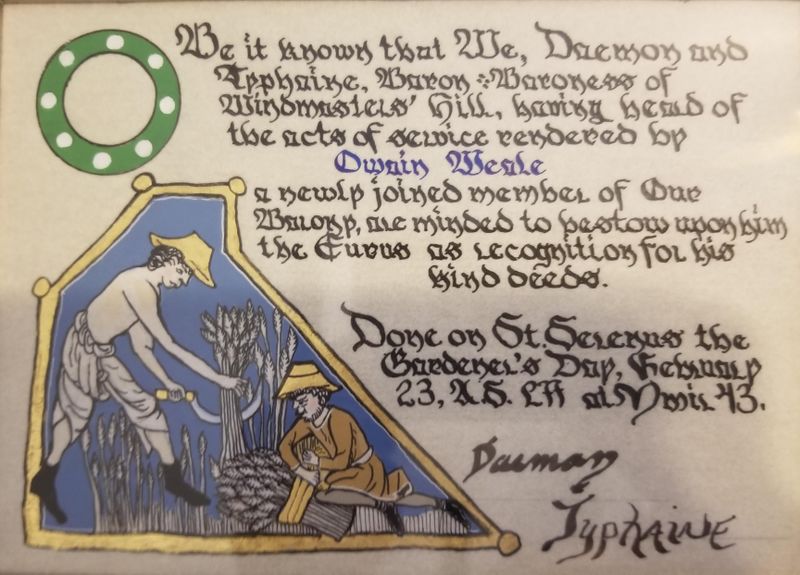 Be it known that We, Daemon and
Typhaine, Baron & Baroness of
Windmasters' Hill, having head of
the acts of service rendered by
Owain Weale
a newly joined member of Our
Barony, are minded to bestow upon him
the Eurus as recognition for his
kind deeds.
Done on St. Serenus the
Gardener's Day, February
23, A.S. LIV at Ymir 43.
Daemon
&
Typhaine